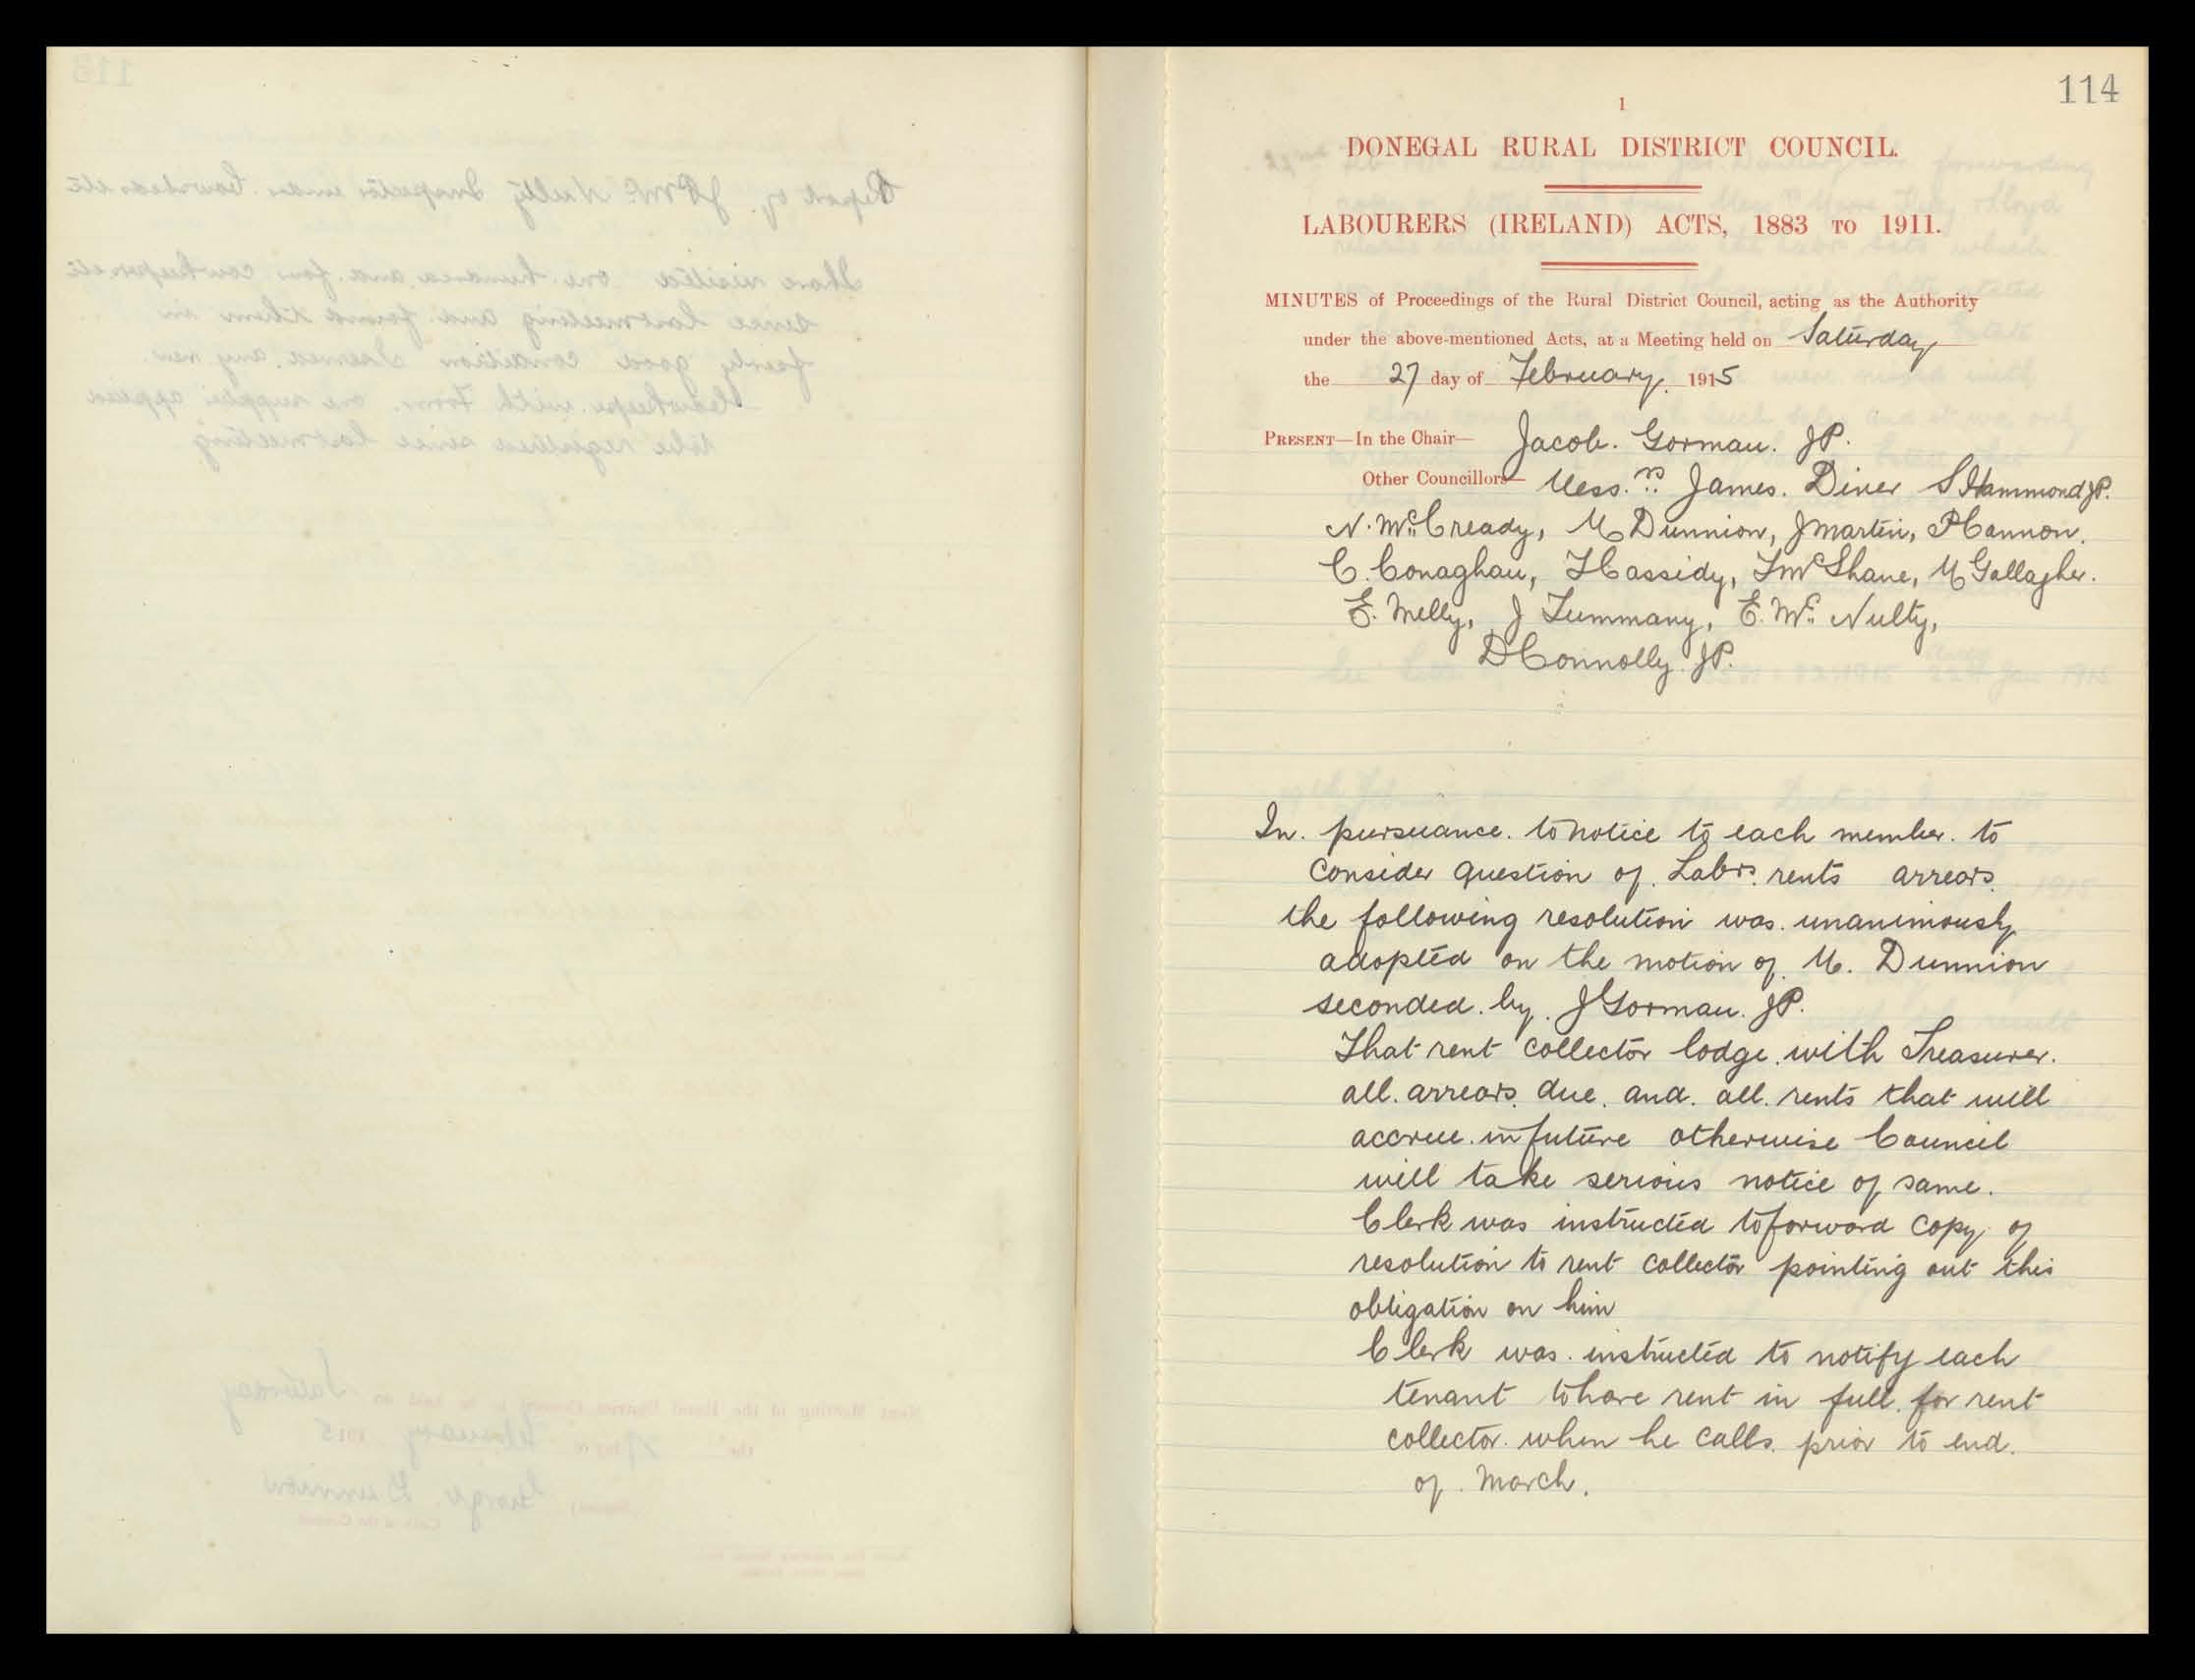 114
1
DONEGAL RURAL DISTRICT COUNCIL.
LABOURERS (IRELAND) ACTS, 1883 TO 1911.
MINUTES of Proceedings of the Rural District Council, acting as the Authority
under the above-mentioned Acts, at a Meeting held on Saturday
the 27 day of February. 1915
PRESENT—In the Chair— Jacob. Gorman. JP.
Other Councillors— Mess.rs James. Diver S Hammond JP.
N. McCready, M Dunnion, J Martin, P Cannon.
C. Conaghan, F Cassidy, F McShane, M Gallagher.
E. Melly, J Tummany, E. Mc Nulty,
D Connolly JP.
In. pursuance. to notice to each member. to
consider question of. Labrs. rents arrears.
the following resolution was. unanimously
adopted on the motion of. M. Dunnion
seconded. by. J Gorman. JP.
That rent collector lodge. with Treasurer.
all. arrears. due. and. all. rents that will
accrue. in future otherwise Council
will take serious notice of same.
Clerk was instructed to forward copy of
resolution to rent collector pointing out this
obligation on him
Clerk was. instructed to notify each
tenant to have rent in full. for rent
collector. when he calls. prior to end.
of. March.